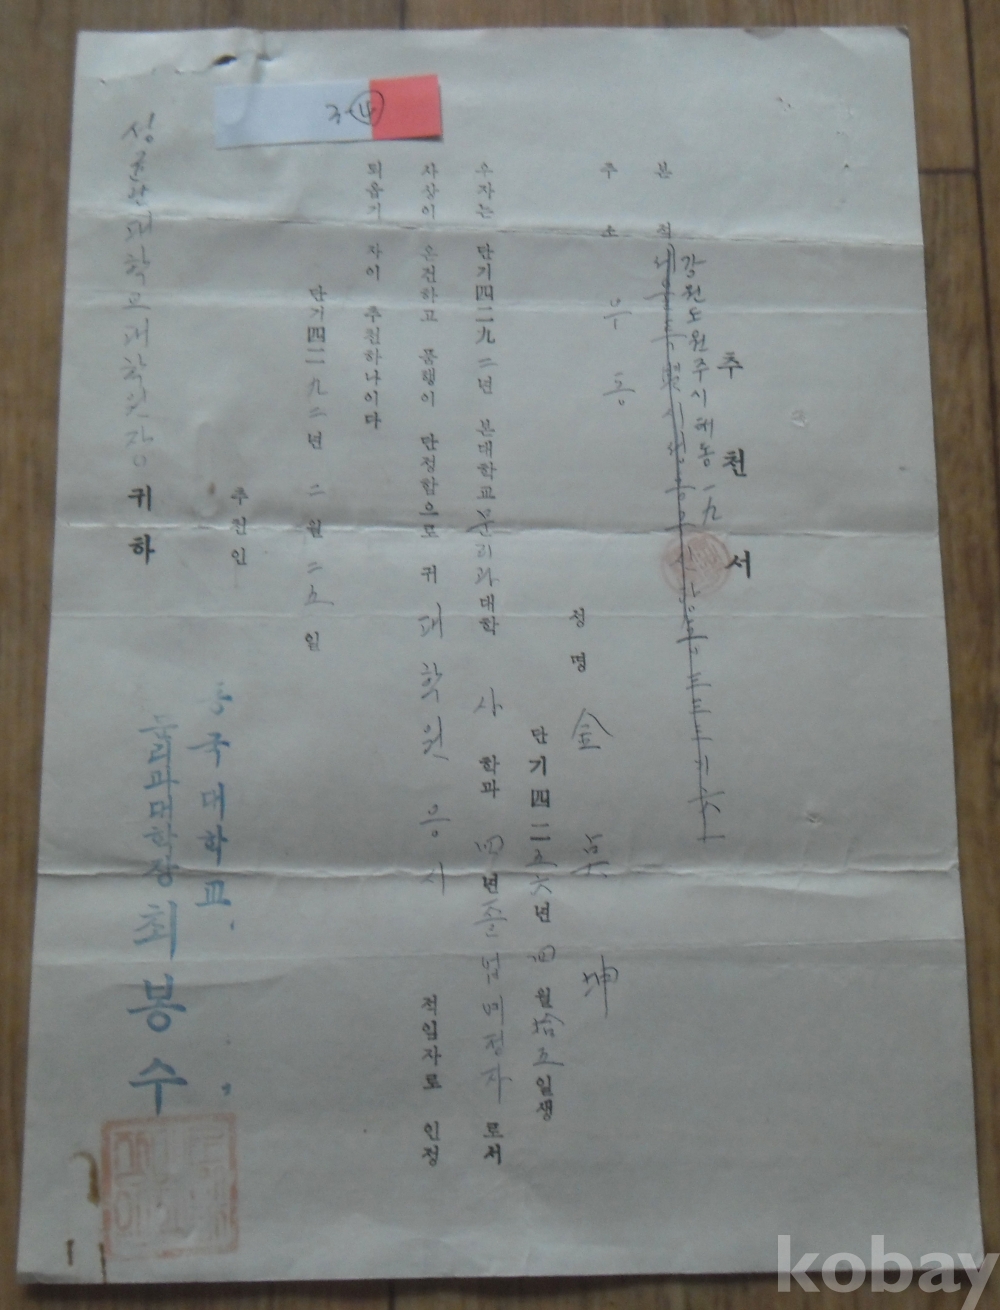 추천서
강원도 원주시 해동 一九
본적
주소
성명 金 坤
단기四二五六년 四월 拾五일생
우자는 단기四二九二년 본대학교 문리과대학 사 학과 四년 졸업예정자 로서
사상이 온전하고 품행이 단정함으로 귀 대학원 응시 적임자로 인정
되옵기 자이 추천하나이다
단기四二九二년 二월 二五일
추천인
동국대학교
문리과대학장 최봉수
성균관대학교대학원장 귀하
3-④
kobay